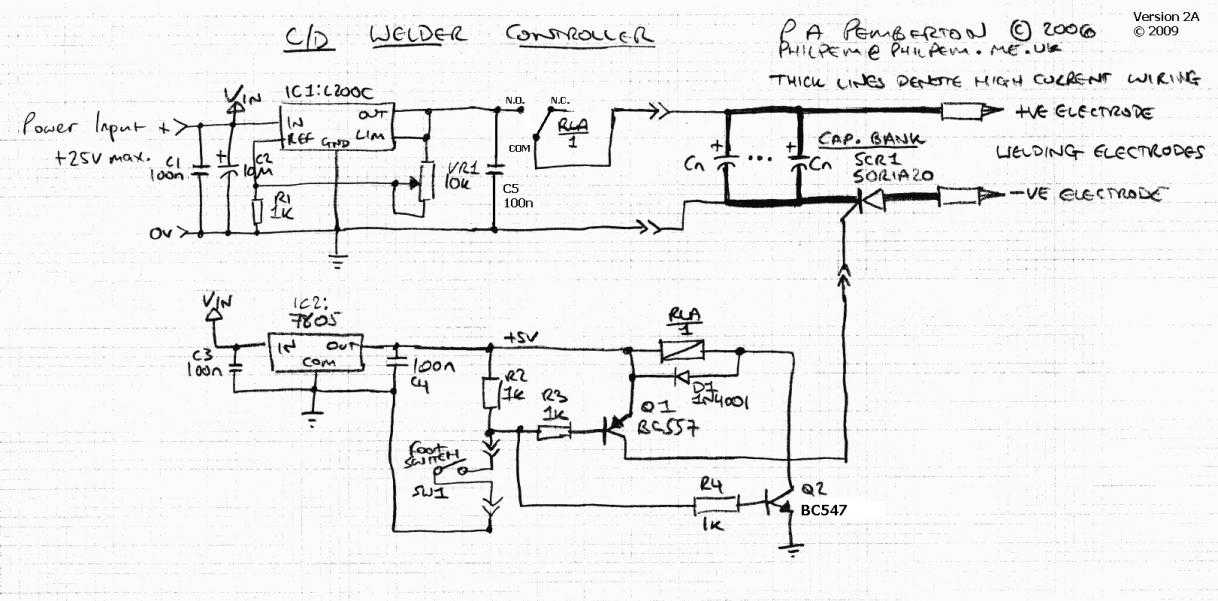 C/D WELDER CONTROLLER
P A PEMBERTON © 2006
PHILPEM@PHILPEM.ME.UK
Version 2A
© 2009
THICK LINES DENOTE HIGH CURRENT WIRING
VIN
IC1:L200C
IN
REF
GND
OUT
LIM
Power Input +
+25V max.
C1
100n
C2
R1
1K
VR1
10K
C5
100n
N.O.
N.C.
COM
RLA
1
0V
+
Cn
...
+
Cn
CAP. BANK
SCR1
50RIA20
+VE ELECTRODE
WELDING ELECTRODES
-VE ELECTRODE
VIN
IC2:
7805
IN
OUT
COM
C3
100n
100n
C4
+5V
R2
1K
R3
1K
Q1
BC557
RLA
1
D1
1N4001
FOOT
SWITCH
SW1
R4
1K
Q2
BC547